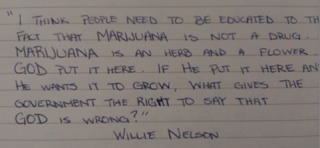 "I THINK PEOPLE NEED TO BE EDUCATED TO TH
FACT THAT MARIJUANA IS NOT A DRUG.
MARIJUANA IS AN HERB AND A FLOWER.
GOD PUT IT HERE. IF HE PUT IT HERE AN
HE WANTS IT TO GROW, WHAT GIVES THE
GOVERNMENT THE RIGHT TO SAY THAT
GOD IS WRONG?"
WILLIE NELSON